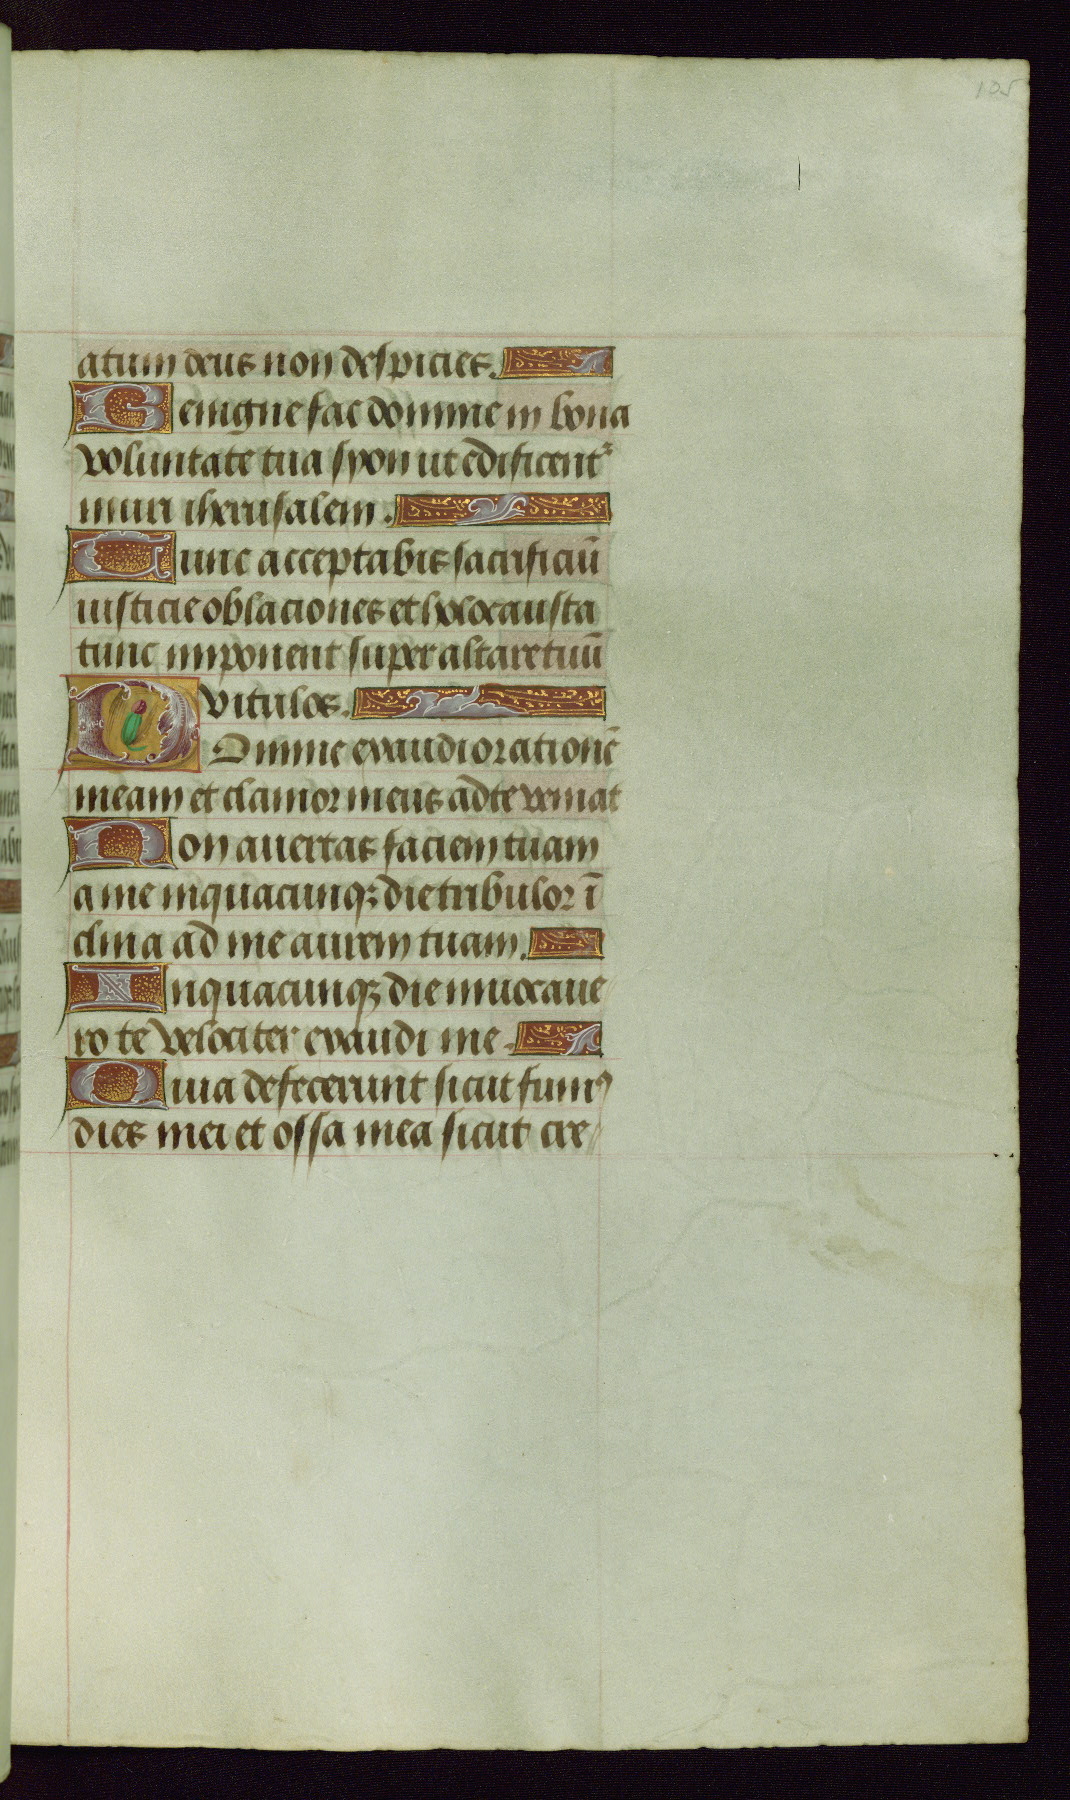 105
atum deus non despicies.
Benigne fac domine in bona
voluntate tua syon ut edificent᷑
muri iherusalem.
Tunc acceptabis sacrificiū
iusticie oblaciones et holocausta
tunc imponent super altare tuū
vitulos.
Domine exaudi orationē
meam et clamor meus ad te veniat
Non avertas faciem tuam
a me in quacunqꝫ die tribulor ī
clina ad me aurem tuam.
In quacunqꝫ die invocave
ro te velociter exaudi me.
Quia defecerunt sicut fumꝰ
dies mei et ossa mea sicut cre